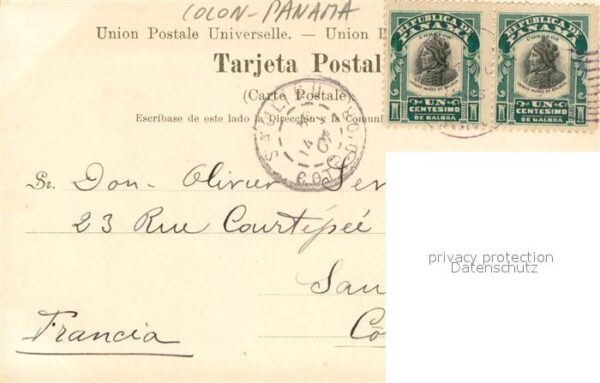 COLON-PANAMA
Union Postale Universelle. — Union P
Tarjeta Postal
(Carte Postale)
Escríbase de este lado la Dirección y la Comuni
REPUBLICA DE PANAMA
CORREOS
VASCO NUÑEZ DE BALBOA
1 UN CENTESIMO 1
DE BALBOA
REPUBLICA DE PANAMA
CORREOS
VASCO NUÑEZ DE BALBOA
1 UN CENTESIMO 1
DE BALBOA
Sr. Don- Olivier Ser
23 Rue Courtépée
Sau
Francia
Co
privacy protection
Datenschutz